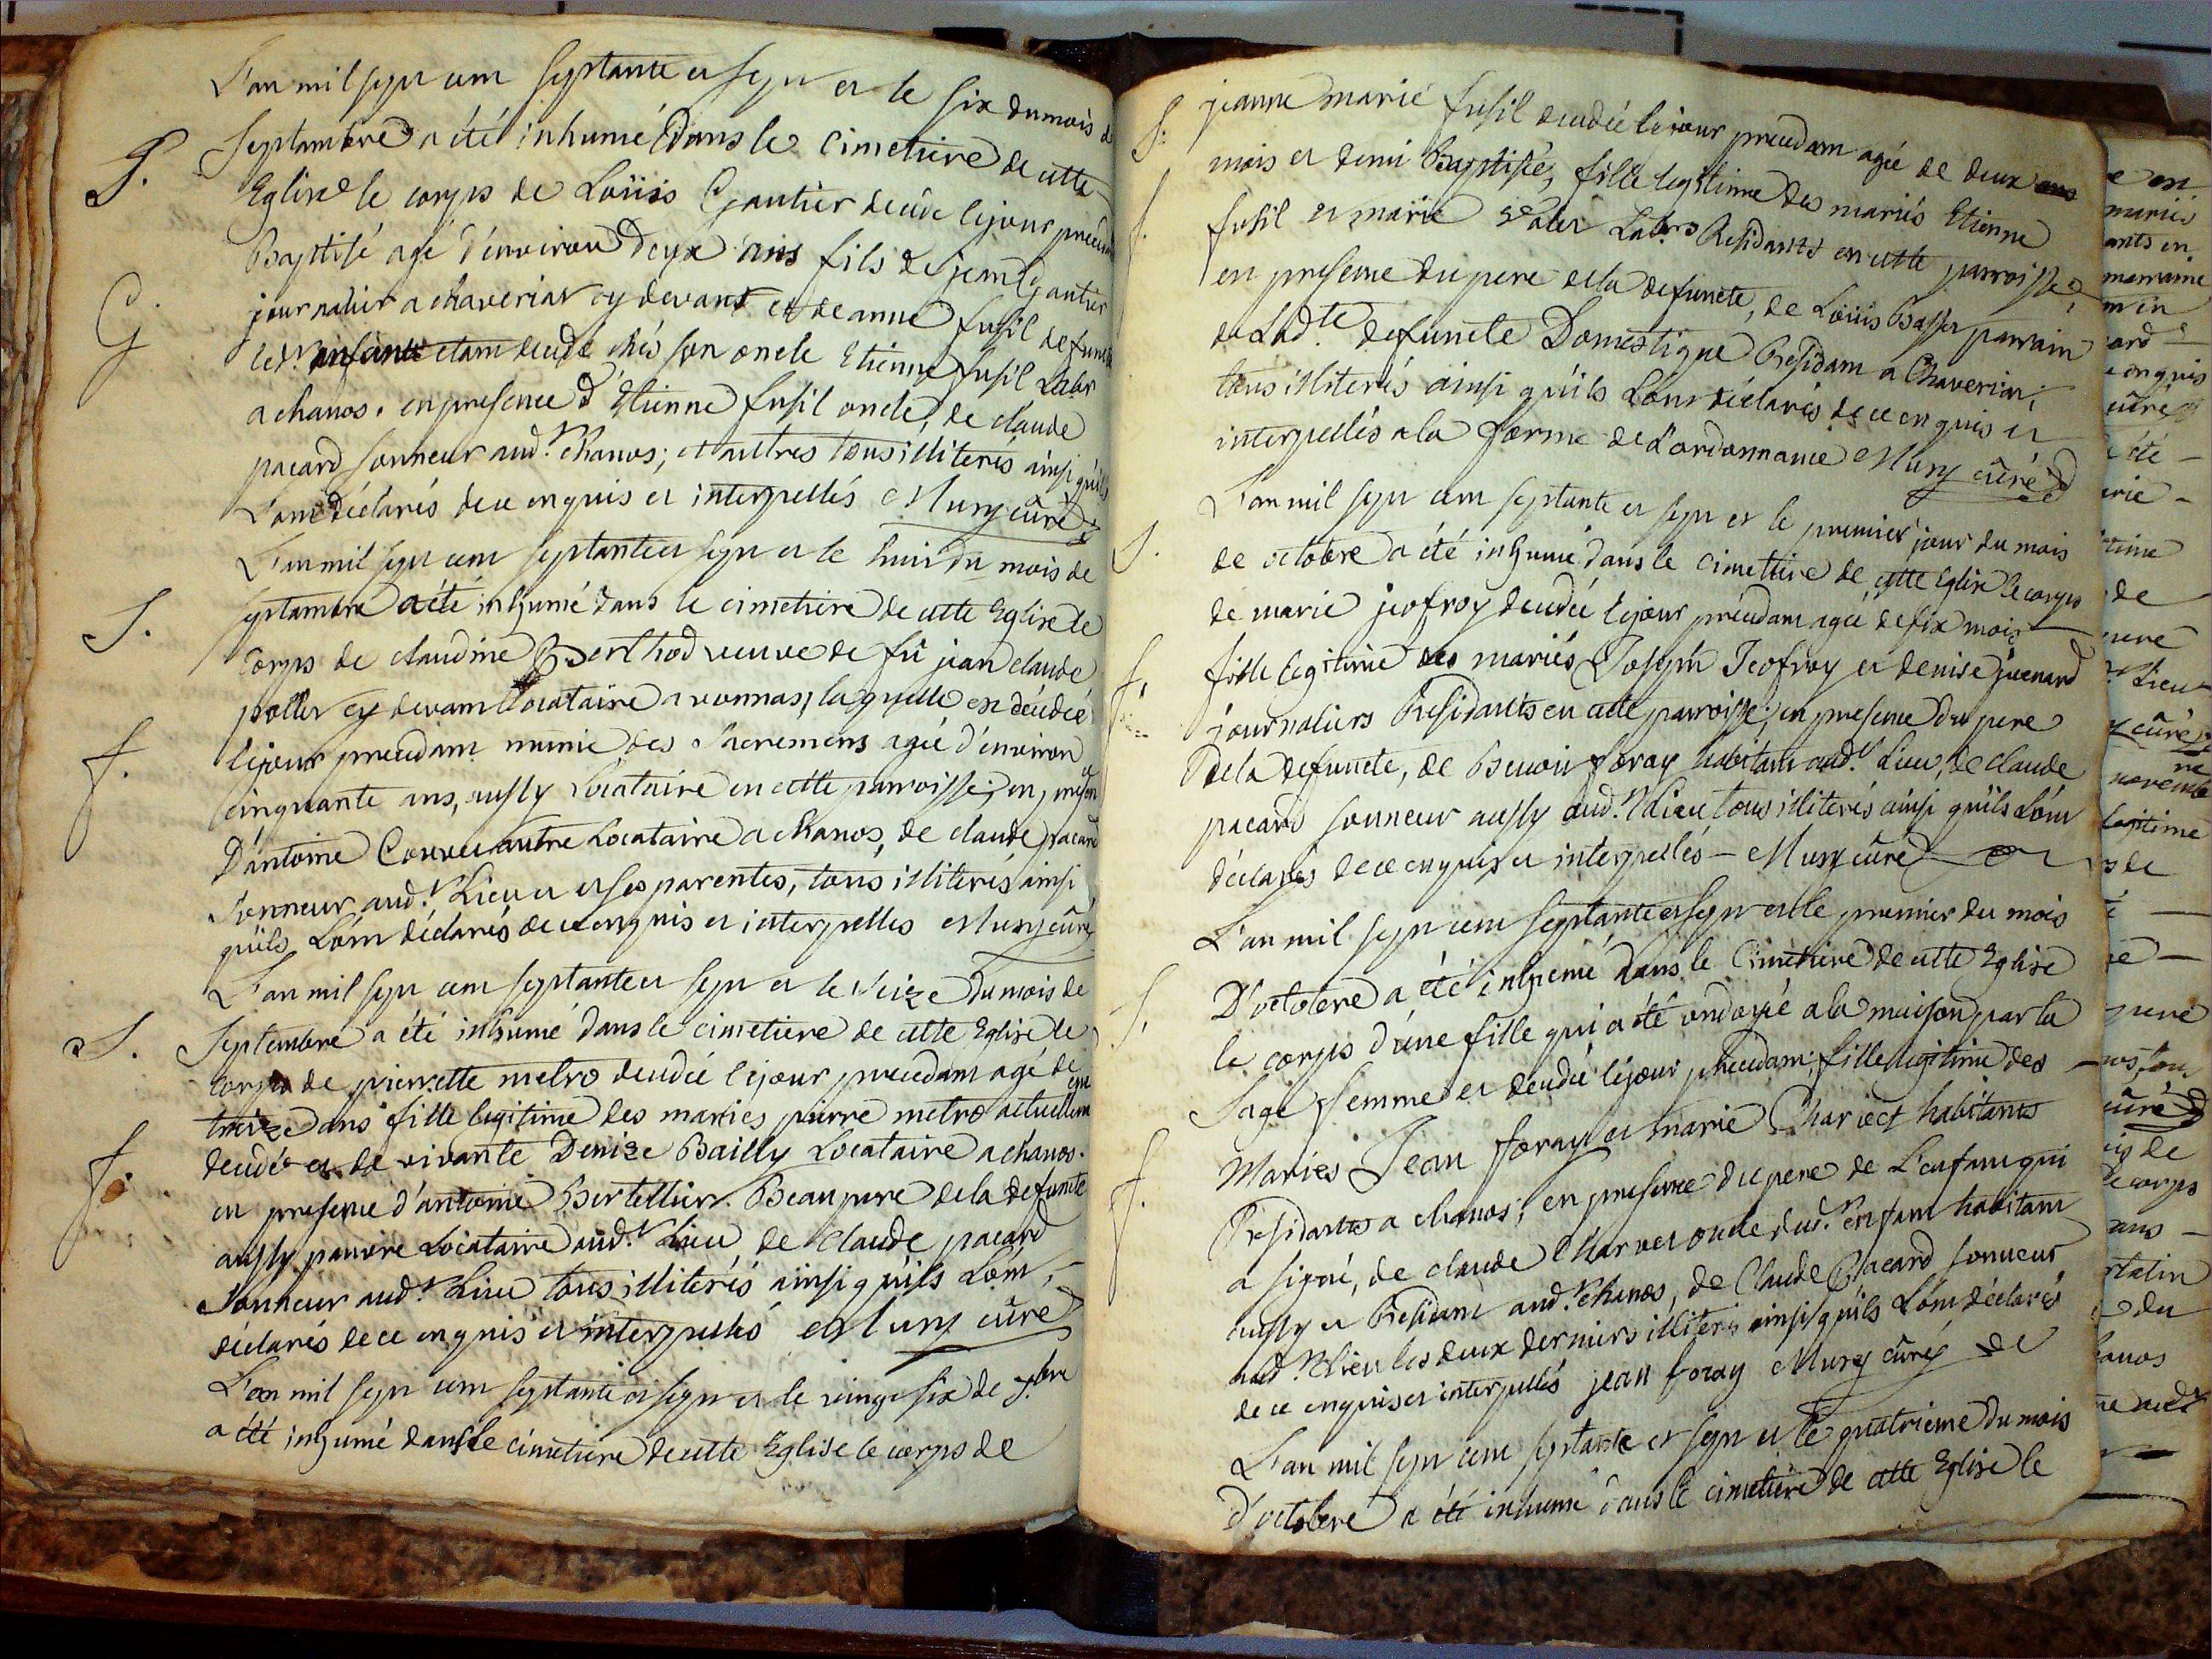 L'an mil sept cent septante et sept et le six du mois de
S. Septambre a été inhumé dans le cimetiere de cette
Eglise le corps de Loüis Gautier decédé le jour preced
Baptisé agé d'environ deux ans fils de jean Gautier
G. journalier a chaveriat cy devant et de anne fusil defuncte
led.t enfant etant decedé chés son oncle Etienne fusil Labr
a chanos. en presence d'Etienne fusil oncle, de claude
pacard sonneur aud.t chanos; et autres tous illiterés ainsi qu'ils
L'ont déclarés de ce enquis et interpellés Mury curé
L'an mil sept cent septante et sept et le huit du mois de
S. septambre a été inhumé dans le cimetiere de cette Eglise le
corps de claudine Berthod veuve de fû jean claude
poller cy devant locataire a vonnas, laquelle est decedée
f. le jour precedant munie des Sacremens agée d'environ
cinquante ans, aussy Locataire en cette parroisse; en presen
D'antoine autre Locataire a chanos, de claude pacard
Sonneur aud.t Lieu et et ses parentes, tous illiterés ainsi
qu'ils L'ont déclarés de ce enquis et interpellés Mury curé
L'an mil sept cent septante et sept et le seize du mois de
S. Septembre a été inhumé dans le cimetiere de cette Eglise le
corps de pierrette metro decedée le jour precedant agé de
treize ans fille legitime des mariés pierre metro actuellem
decedé et de vivante Denize Bailly Locataire a chanos.
f. en presence d'antoine Bertellier Beaupere de la defuncte
aussy pauvre Locataire aud.t Lieu, de claude pacard
Sonneur aud.t Lieu tous illiterés ainsi qu'ils L'ont,
déclarés de ce enquis et interpellés Mury curé
L'an mil sept cent septante et sept et le vingt six de 7.bre
a été inhumé dans le cimetiere de cette Eglise le corps de
S. jeanne marie fusil decedée le jour precedant agée de deux ans
mois et demi Baptisée, fille legitime des mariés Etienne
f. fusil et marie Lab.rs Residants en cette parroisse;
en presence du pere de la defuncte, de Loüis Basset parrain
de Lad.te defuncte Domestique Residant a Chaveriat;
tous illiterés ainsi qu'ils L'ont déclarés de ce enquis et
interpellés a la forme de L'ordonnance Mury curé
L'an mil sept cent septante et sept et le premier jour du mois
S. de octobre a été inhumé dans le cimettiere de cette Eglise le corps
de marie jeofroy decedée le jour précedant agée de six mois
f. fille legitime des mariés Joseph Jeofroy et denise guenard
journaliers Residants en cette parroisse; en presence du pere
de la defuncte, de Benoit foray habitant aud.t Lieu, de claude
pacard sonneur aussy aud.t Lieu tous illiterés ainsi qu'ils L'ont
déclarés de ce enquis et interpellés - Mury curé
L'an mil sept cent septante et sept et le premier du mois
S. D'octobre a été inhumé dans le Cimetiere de cette Eglise
le corps d'une fille qui a été ondoyée a la maison par la
Sage femme et decedée le jour precedant; fille legitime des
f. Mariés Jean foray et marie Charvet habitants
Residants a chanos; en presence du pere de L'enfant qui
a signé, de claude Charvet oncle dud.t enfant habitant
aussy et Residant aud.t chanos, de Claude Pacard sonneur
aud.t Lieu les deux derniers illiterés ainsi qu'ils L'ont déclarés
de ce enquis et interpellés jean foray Mury curé
L'an mil sept cent septante et sept et le quatrieme du mois
d'octobre a été inhumé dans le cimetiere de cette Eglise le